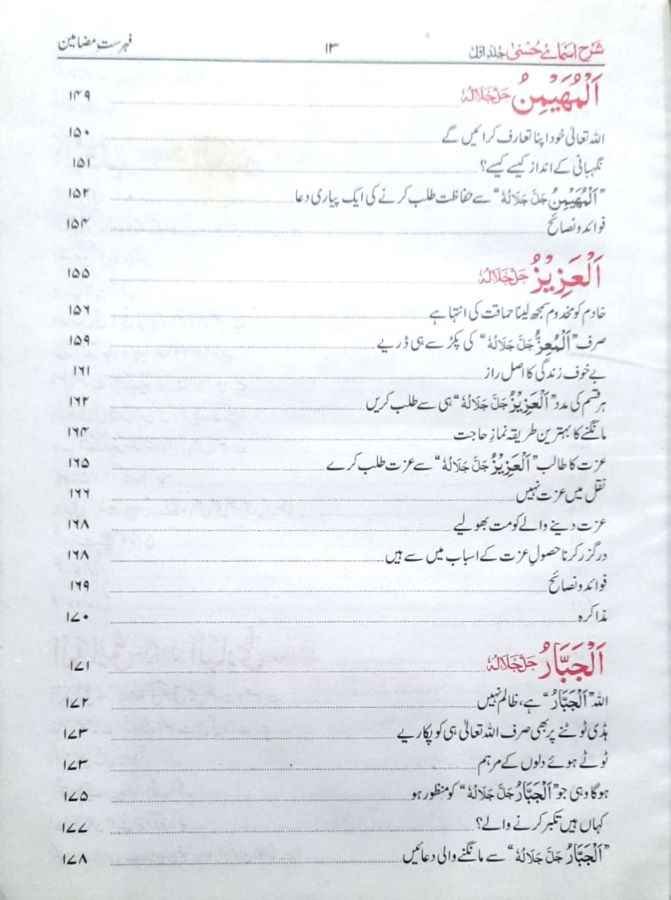 شرح اسمائے حسنیٰ جلد اول ۱۳ فہرست مضامین
اَلْمُهَيْمِنُ جَلَّ جَلَالُهٗ ۱۴۹
اللہ تعالیٰ خود اپنا تعارف کرائیں گے ۱۵۰
نگہبانی کے انداز کیسے کیسے؟ ۱۵۱
”اَلْمُهَيْمِنُ جَلَّ جَلَالُهٗ“ سے حفاظت طلب کرنے کی ایک پیاری دعا ۱۵۲
فوائد و نصائح ۱۵۴
اَلْعَزِيْزُ جَلَّ جَلَالُهٗ ۱۵۵
خادم کو مخدوم سمجھ لینا حماقت کی انتہا ہے ۱۵۶
صرف ”اَلْمُعِزُّ جَلَّ جَلَالُهٗ“ کی پکڑ سے ہی ڈریے ۱۵۹
بے خوف زندگی کا اصل راز ۱۶۱
ہر قسم کی مدد ”اَلْعَزِيْزُ جَلَّ جَلَالُهٗ“ ہی سے طلب کریں ۱۶۲
مانگنے کا بہترین طریقہ نمازِ حاجت ۱۶۴
عزت کا طالب ”اَلْعَزِيْزُ جَلَّ جَلَالُهٗ“ سے عزت طلب کرے ۱۶۵
نقل میں عزت نہیں ۱۶۶
عزت دینے والے کو مت بھولیے ۱۶۸
درگزر کرنا حصولِ عزت کے اسباب میں سے ہیں ۱۶۸
فوائد و نصائح ۱۶۹
مذاکرہ ۱۷۰
اَلْجَبَّارُ جَلَّ جَلَالُهٗ ۱۷۱
اللہ ”اَلْجَبَّارُ“ ہے، ظالم نہیں ۱۷۲
ہڈی ٹوٹنے پر بھی صرف اللہ تعالیٰ ہی کو پکاریے ۱۷۳
ٹوٹے ہوئے دلوں کے مرہم ۱۷۳
ہوگا وہی جو ”اَلْجَبَّارُ جَلَّ جَلَالُهٗ“ کو منظور ہو ۱۷۵
کہاں ہیں تکبر کرنے والے؟ ۱۷۷
”اَلْجَبَّارُ جَلَّ جَلَالُهٗ“ سے مانگنے والی دعائیں ۱۷۸